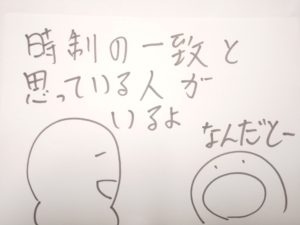 時制の一致と
思っている人が
いるよ
なんだとー